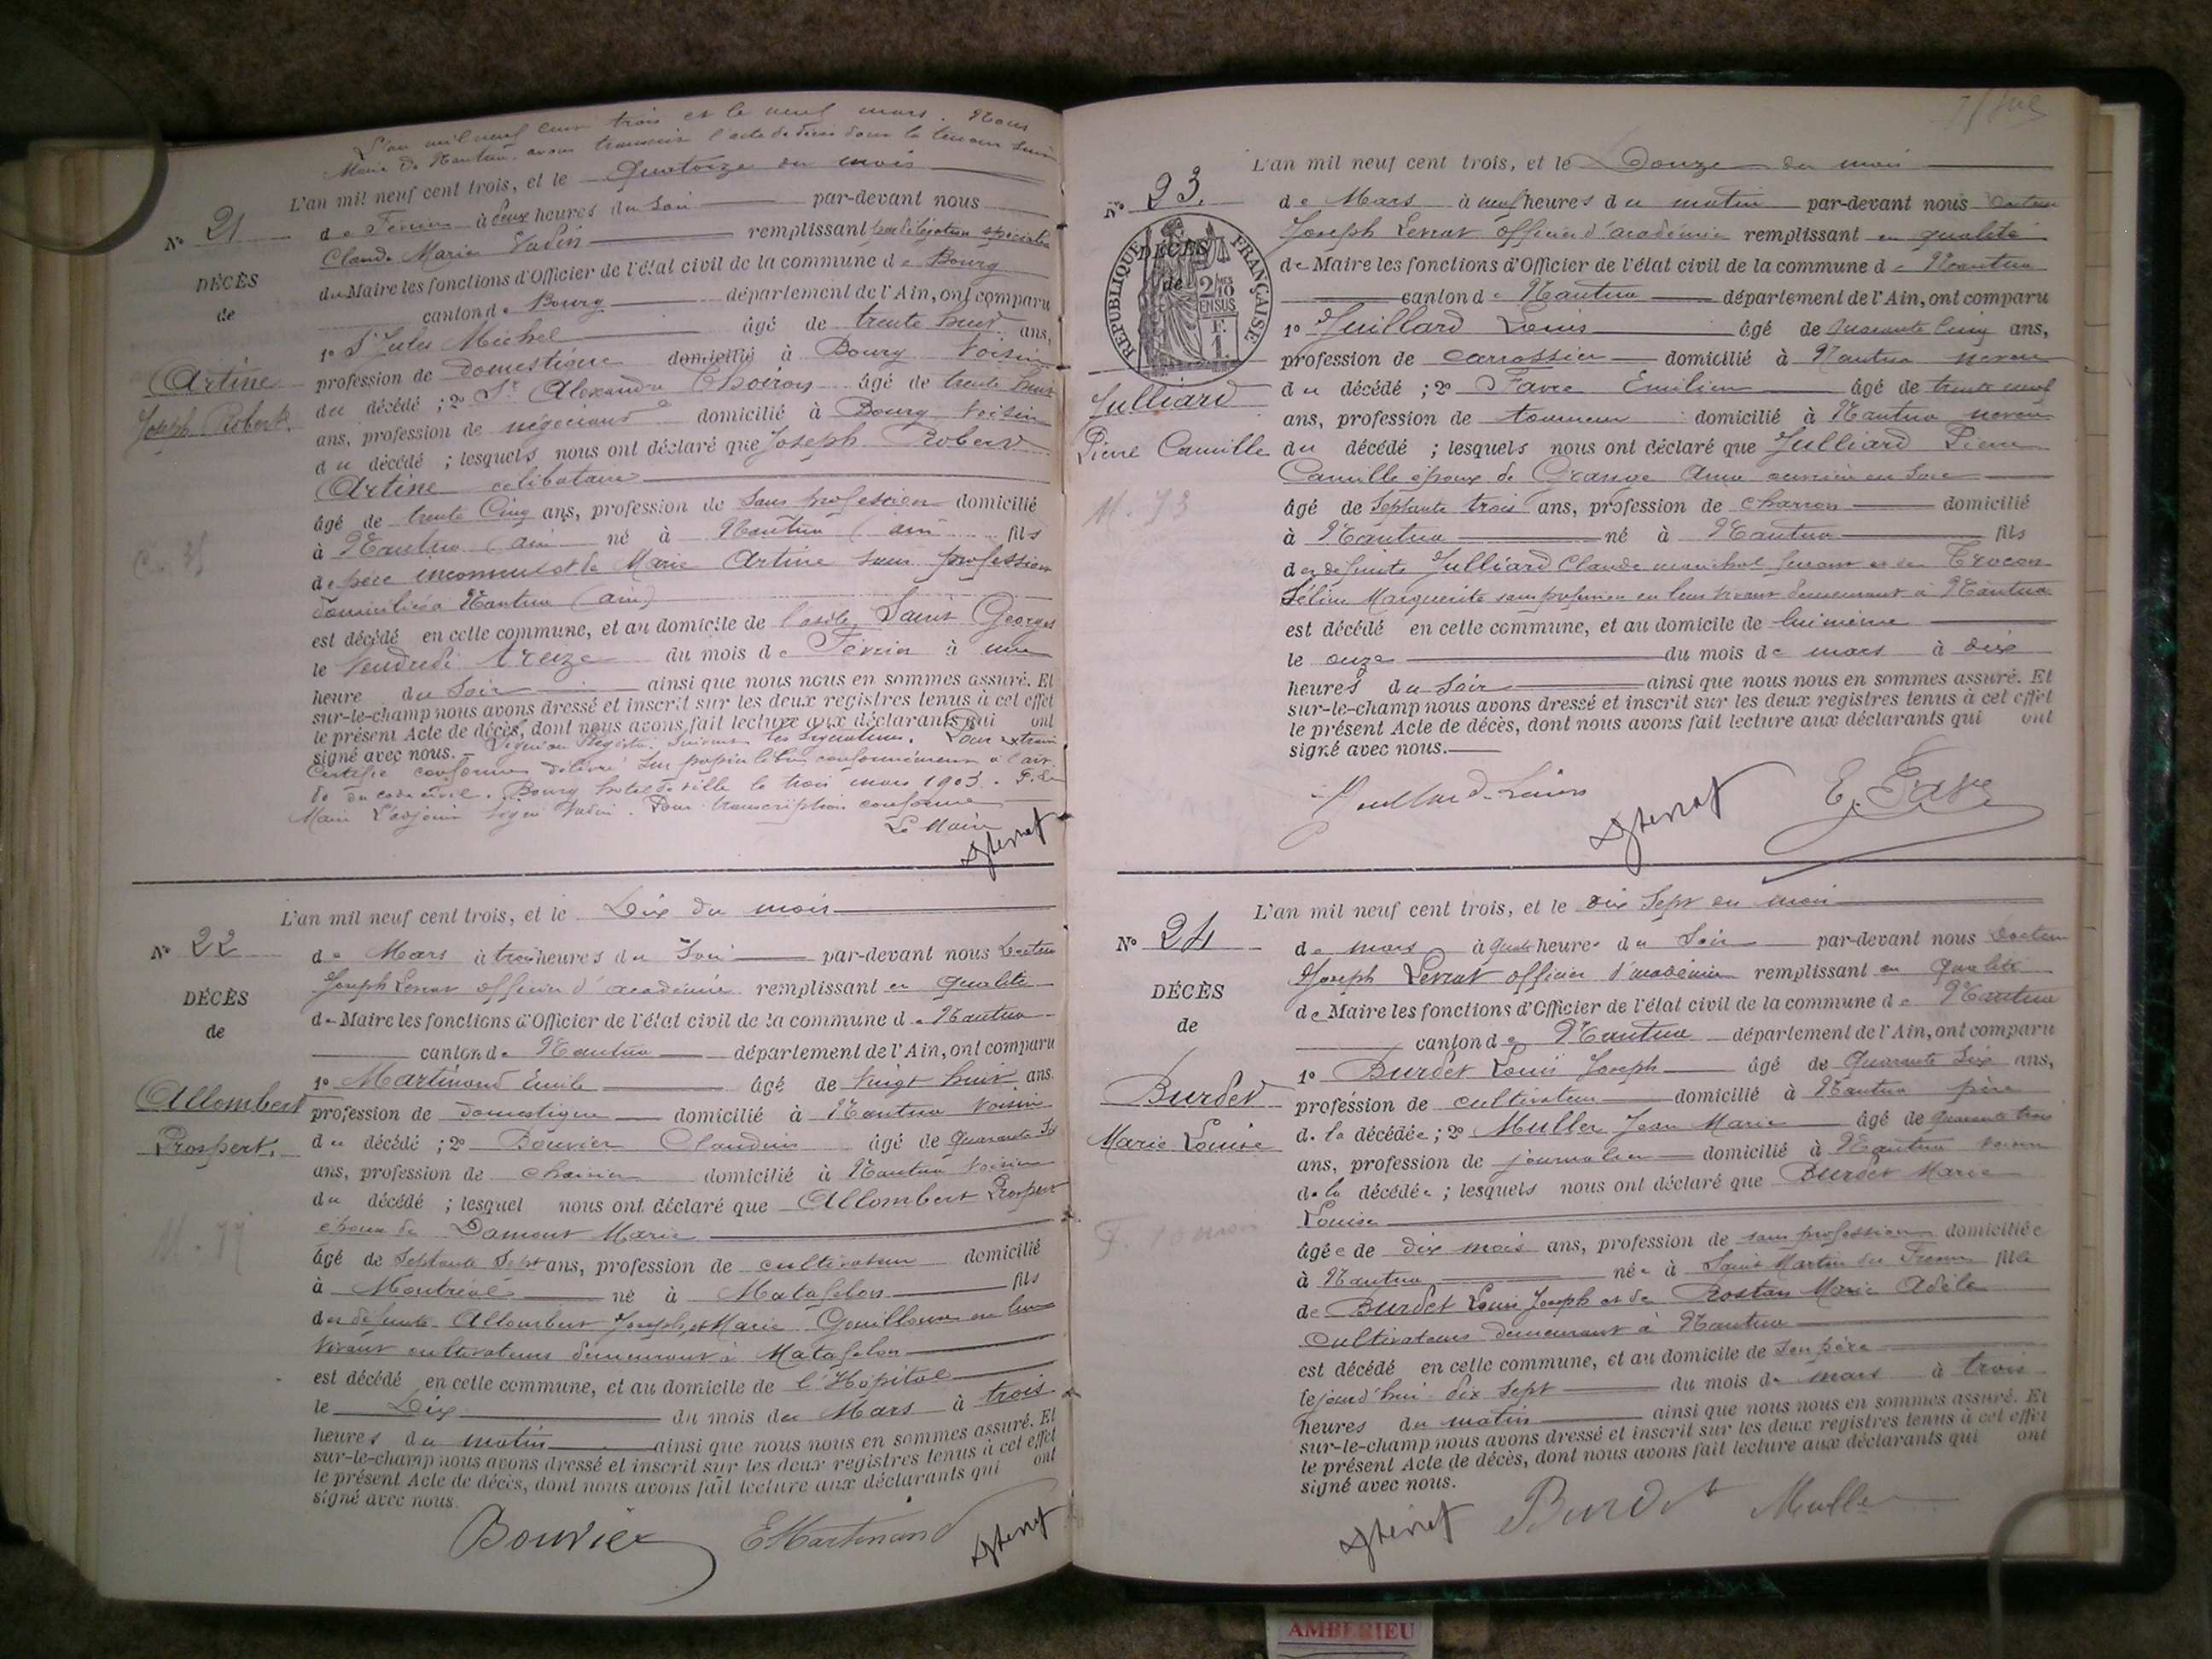 L'an mil neuf cent trois et le neuf mars. Nous
Maire de Nantua avons transcrit l'acte de décès dont la teneur suit
L'an mil neuf cent trois, et le Quatorze du mois
N° 21
de Février à deux heures du soir par-devant nous
Claude Marie Vadin remplissant par délégation spéciale
du Maire les fonctions d'Officier de l'état civil de la commune de Bourg
DÉCÈS
de
canton de Bourg département de l'Ain, ont comparu
1° Sr Jules Michel âgé de trente huit ans,
profession de domestique domicilié à Bourg voisin
Artine
Joseph Robert.
du décédé ; 2° Sr Alexandre Choiron âgé de trente huit
ans, profession de négociant domicilié à Bourg voisin
du décédé ; lesquels nous ont déclaré que Joseph Robert
Artine célibataire
âgé de trente cinq ans, profession de sans profession domicilié
à Nantua (ain né à Nantua (ain fils
de père inconnu et de Marie Artine sans profession
domiciliée à Nantua (ain)
est décédé en cette commune, et au domicile de l'asile Saint Georges
le vendredi treize du mois de Février à une
heure du soir ainsi que nous nous en sommes assuré. Et
sur-le-champ nous avons dressé et inscrit sur les deux registres tenus à cet effet
le présent Acte de décès, dont nous avons fait lecture aux déclarants qui ont
signé avec nous. suivent les signatures. Pour extrait
certifié conforme délivré sur papier libre conformément à l'art.
80 du code civil. Bourg hotel de ville le trois mars 1903. P. Le
Maire L'adjoint signé Vadin. Pour transcription conforme
Le Maire
L'an mil neuf cent trois, et le Dix du mois
N° 22
de Mars à trois heures du soir par-devant nous Docteur
Joseph Levrat officier d'académie remplissant en qualité
de Maire les fonctions d'Officier de l'état civil de la commune de Nantua
DÉCÈS
de
canton de Nantua département de l'Ain, ont comparu
1° Martinand Emile âgé de vingt huit ans.
Allombert
Prospert.
profession de domestique domicilié à Nantua voisin
du décédé ; 2° Bouvier Claudius âgé de quarante
ans, profession de domicilié à Nantua voisin
du décédé ; lesquel nous ont déclaré que Allombert Prospert
époux de Damont Marie
M. 77
âgé de septante sept ans, profession de cultivateur domicilié
à Montréal né à Matafelon fils
des défunts Allombert Joseph et Marie Gouilloux en leur
vivant cultivateurs demeurant à Matafelon
est décédé en cette commune, et au domicile de l'Hôpital
le Dix du mois du Mars à trois
heures du matin ainsi que nous nous en sommes assuré. Et
sur-le-champ nous avons dressé et inscrit sur les deux registres tenus à cet effet
le présent Acte de décès, dont nous avons fait lecture aux déclarants qui ont
signé avec nous.
Bouvier EMartinand
L'an mil neuf cent trois, et le Douze du mois
N° 23.
de Mars à neuf heures du matin par-devant nous Docteur
Joseph Levrat officier d'académie remplissant en qualité
de Maire les fonctions d'Officier de l'état civil de la commune de Nantua
RÉPUBLIQUE FRANÇAISE
DÉCÈS
de
2/10 EN SUS
F. 1.
canton de Nantua département de l'Ain, ont comparu
1° Juillard Louis âgé de quarante cinq ans,
profession de carrossier domicilié à Nantua neveu
du décédé ; 2° Favre Emilien âgé de trente neuf
Julliard
Pierre Camille
ans, profession de tourneur domicilié à Nantua neveu
du décédé ; lesquels nous ont déclaré que Julliard Pierre
Camille époux de Grange Anna ouvrière en soie
M. 73
âgé de septante trois ans, profession de charron domicilié
à Nantua né à Nantua fils
des défunts Julliard Claude maréchal ferrant et de Trocon
Céline Marguerite sans profession en leur vivant demeurant à Nantua
est décédé en cette commune, et au domicile de lui même
le onze du mois de mars à dix
heures du soir ainsi que nous nous en sommes assuré. Et
sur-le-champ nous avons dressé et inscrit sur les deux registres tenus à cet effet
le présent Acte de décès, dont nous avons fait lecture aux déclarants qui ont
signé avec nous.
E. Favre
L'an mil neuf cent trois, et le dix sept du mois
N° 24
de mars à quatre heures du soir par-devant nous Docteur
Joseph Levrat officier d'académie remplissant en qualité
de Maire les fonctions d'Officier de l'état civil de la commune de Nantua
DÉCÈS
de
canton de Nantua département de l'Ain, ont comparu
1° Burdet Louis Joseph âgé de quarante six ans,
Burdet
Marie Louise
profession de cultivateur domicilié à Nantua père
de la décédée ; 2° Muller Jean Marie âgé de quarante trois
ans, profession de journalier domicilié à Nantua voisin
de la décédée ; lesquels nous ont déclaré que Burdet Marie
Louise
âgée de dix mois ans, profession de sans profession domiciliée
à Nantua née à Saint Martin du Fresne fille
de Burdet Louis Joseph et de Rostan Marie Adèle
cultivateurs demeurant à Nantua
est décédé en cette commune, et au domicile de son père
le jourd'hui dix sept du mois de mars à trois
heures du matin ainsi que nous nous en sommes assuré. Et
sur-le-champ nous avons dressé et inscrit sur les deux registres tenus à cet effet
le présent Acte de décès, dont nous avons fait lecture aux déclarants qui ont
signé avec nous.
Burdet Muller
AMBERIEU